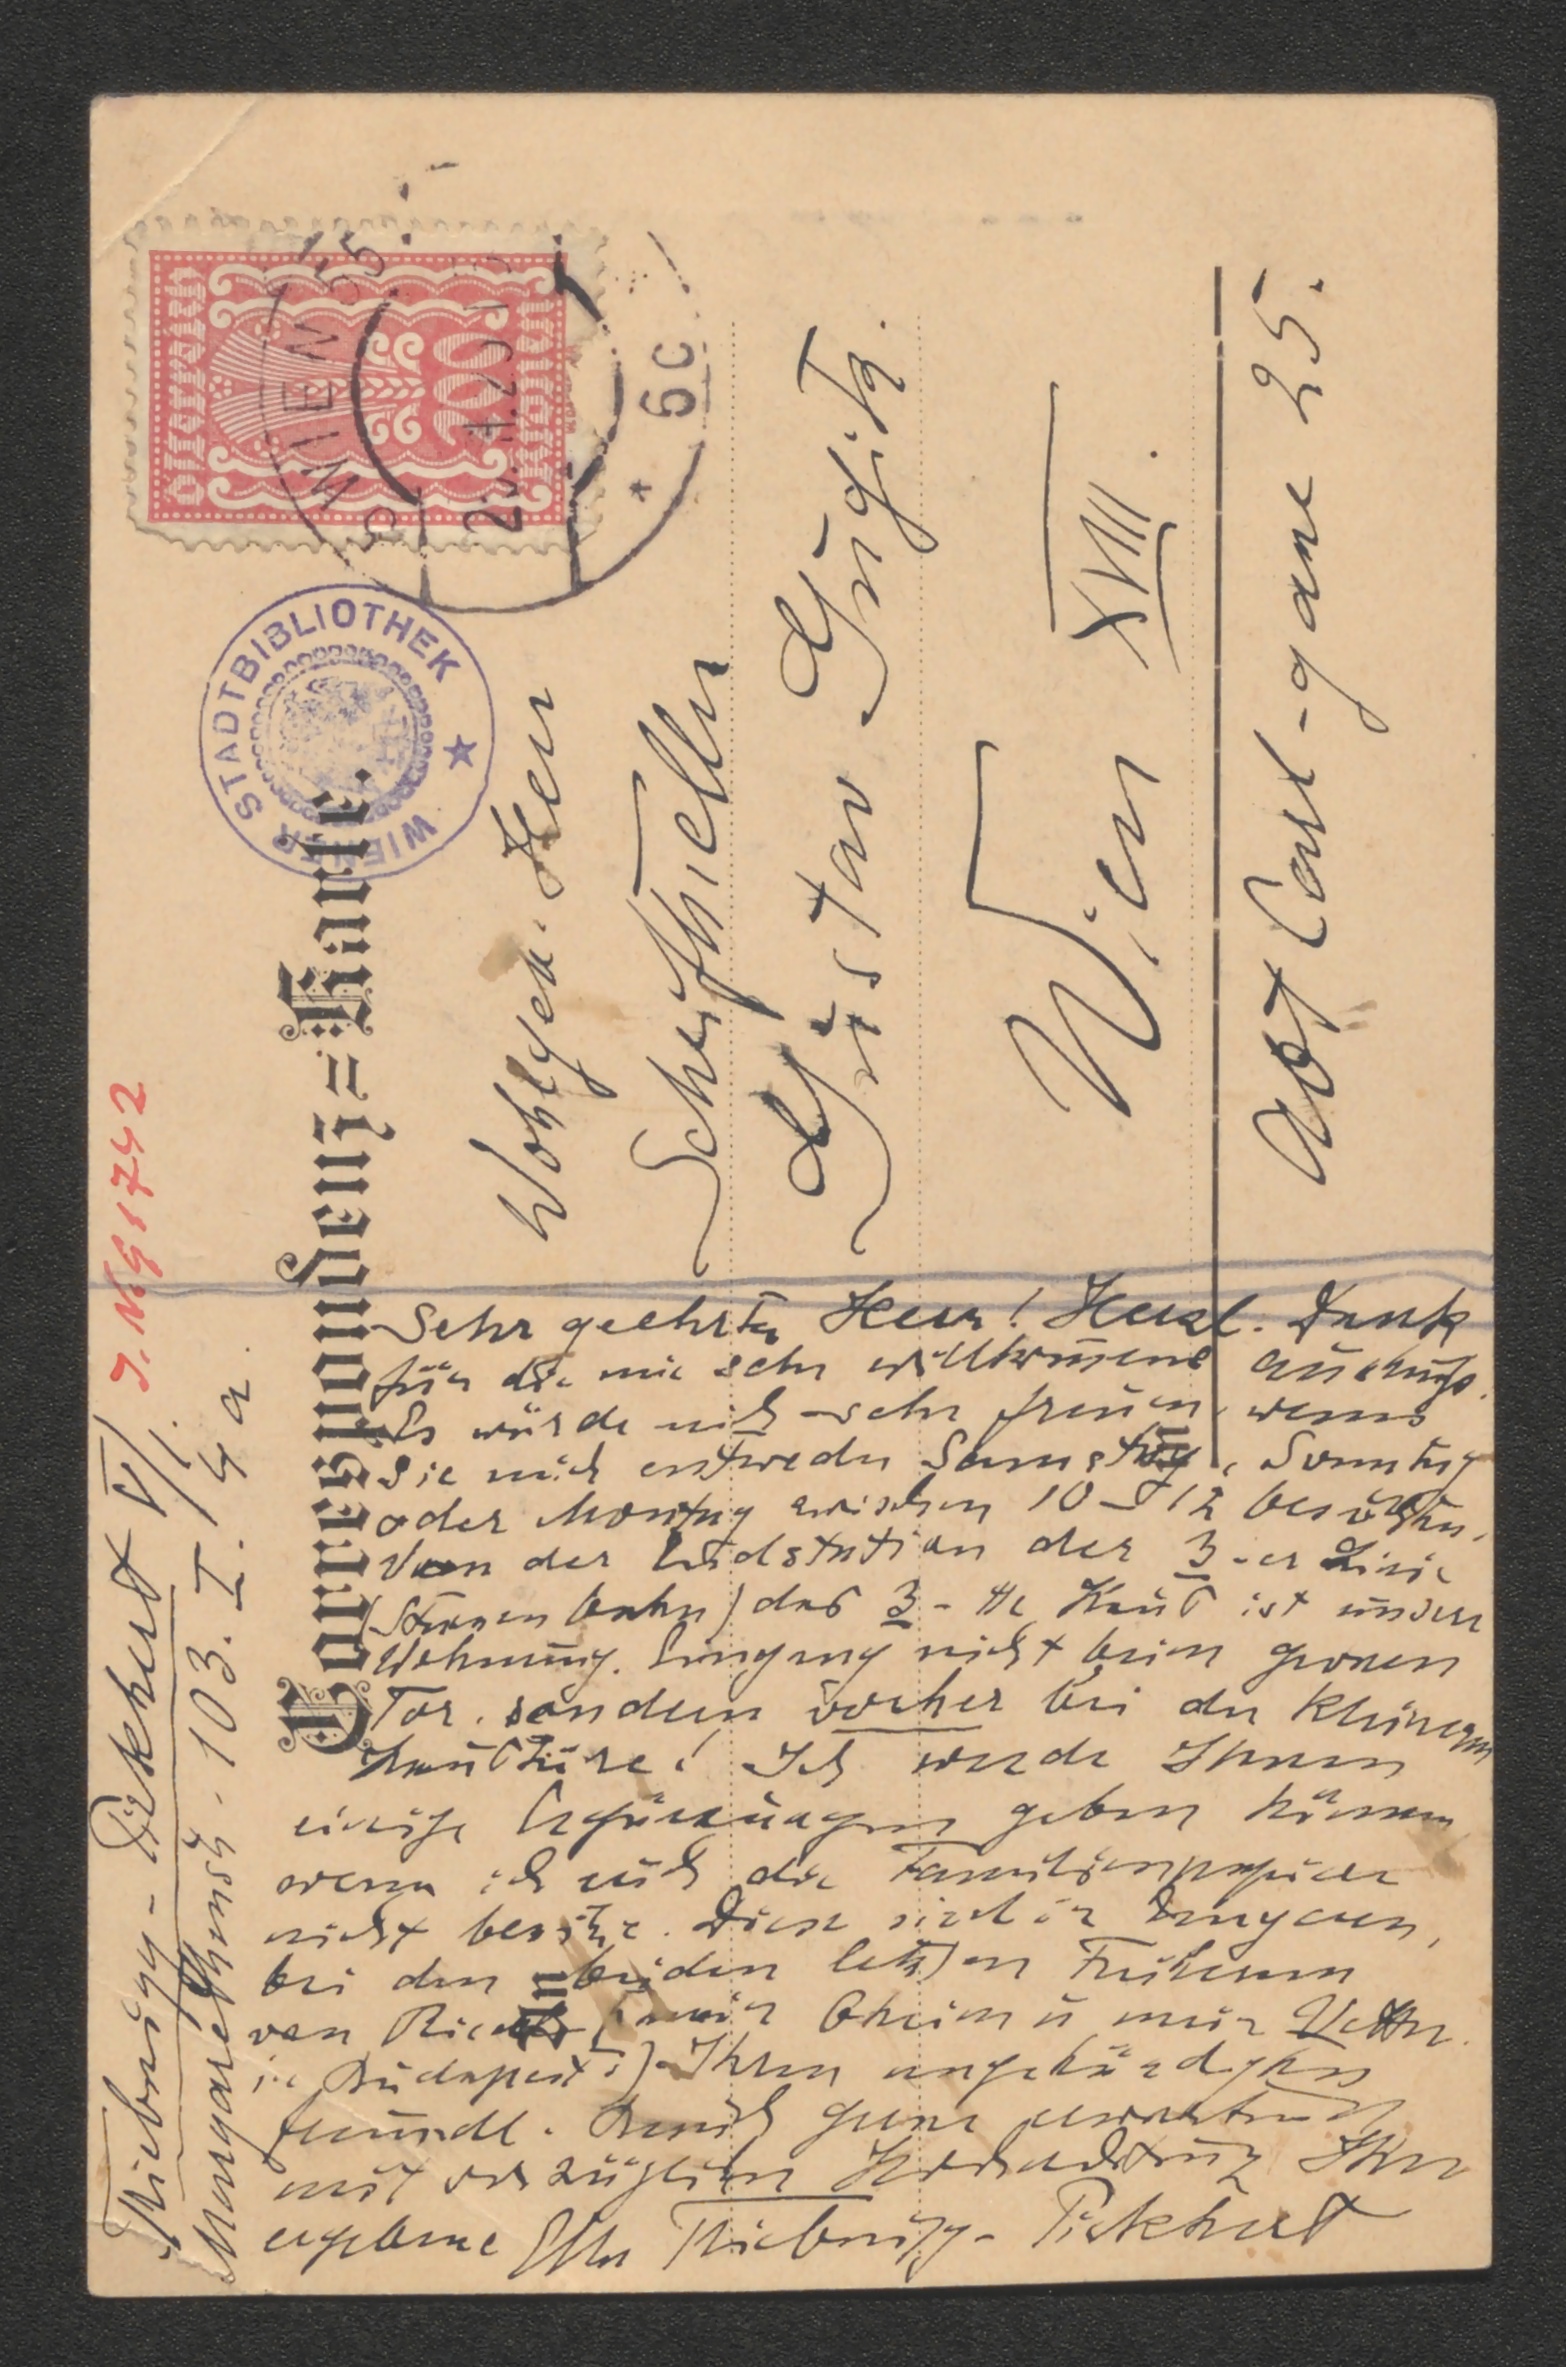 J. N. 91742
Thiebnigg-Pickhert VI/1.
Margarethenstr. 103. I. 4a.
Correspondenz=Karte.
An
ÖSTERREICH
200
WIEN 55
6c
WIENER STADTBIBLIOTHEK
Wohlgeb. Herr
Schriftsteller
Gustav Gugitz.
Wien XVIII.
Abt Carl-gasse 25.
Sehr geehrter Herr! Herzl. Dank
für die mir sehr willkommene Auskunft.
Es würde mich sehr freuen, wenn
Sie mich entweder Samstag, Sonntag
oder Montag zwischen 10–12 besuchten.
Von der Endstation der 3-er Linie
(Strassenbahn) das 3-te Haus ist unsere
Wohnung. Eingang nicht beim grossen
Tor, sondern vorher bei der kleineren
Haustüre! Ich werde Ihnen
einige Ergänzungen geben können
wenn ich auch die Familienpapiere
nicht besitze. Diese sind in Ungarn,
bei den beiden letzten Freiherrn
von (mein Oheim u mein Vetter
in Budapest.) Ihren angekündigten
freundl. Besuch gerne erwartend
mit vorzüglicher Hochachtung Ihre
ergebene Thiebnigg-Pickhert